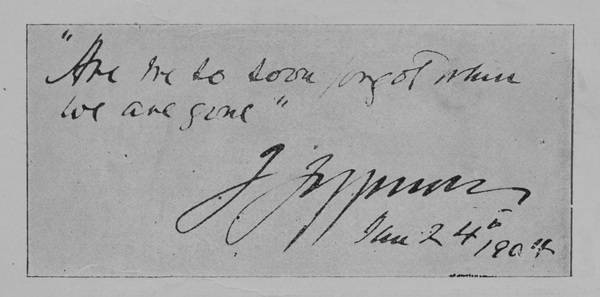 "Are we so soon forgot when
we are gone"
J Jefferson
Jan 24th
1904